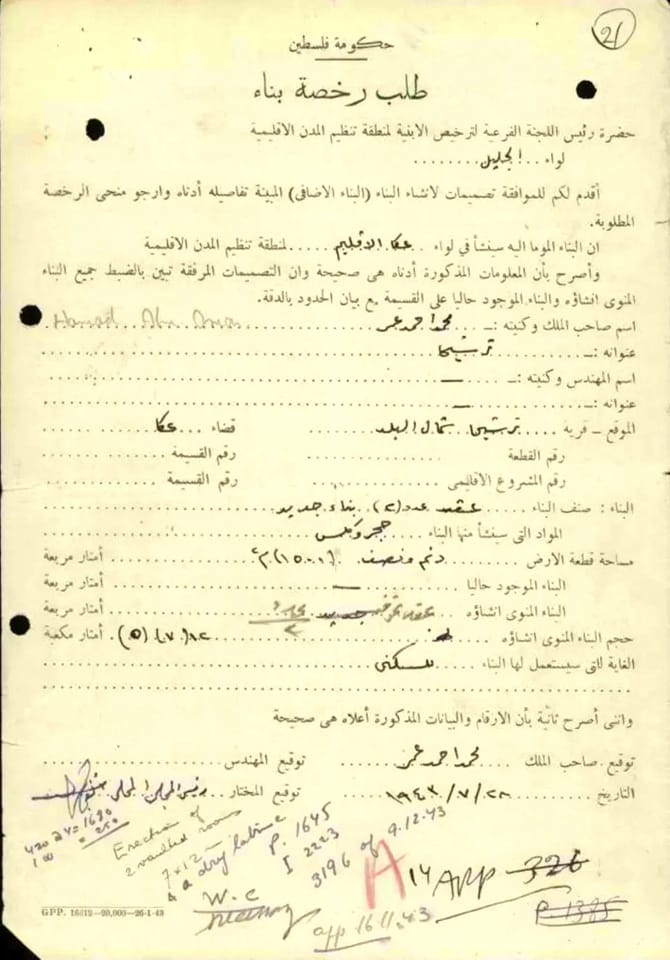 21
حكومة فلسطين
طلب رخصة بناء
حضرة رئيس اللجنة الفرعية لترخيص الابنية لمنطقة تنظيم المدن الاقليمية
لواء . . الجليل . . . . . . . .
أقدم لكم للموافقة تصميمات لانشاء البناء (البناء الاضافى) المبينة تفاصيله أدناه وارجو منحى الرخصة
المطلوبة.
ان البناء الموما اليه سينشأ في لواء . . عكا الاقليم . . . . . لمنطقة تنظيم المدن الاقليمية
وأصرح بأن المعلومات المذكورة أدناه هى صحيحة وان التصميمات المرفقة تبين بالضبط جميع البناء
المنوى انشاؤه والبناء الموجود حاليا على القسيمة مع بيان الحدود بالدقة.
اسم صاحب الملك وكنيته :ــ . . . محمد احمد عمر
عنوانه :ــ ترشيحا
اسم المهندس وكنيته :ــ ــ
عنوانه :ــ ــ
الموقع ــ قرية . . . . ترشيحا شمال البلد قضاء . . . عكا
رقم القطعة رقم القسيمة
رقم المشروع الأقليمى رقم القسيمة
البناء : صنف البناء . . . . . عقد عدد (٢) بناء جديد
المواد التى سينشأ منها البناء . . . حجر وكلس
مساحة قطعة الارض . . . . . دنم ونصف (١٥٠٠) م٢ أمتار مربعة
البناء الموجود حاليا ــ أمتار مربعة
البناء المنوى انشاؤه جديد أمتار مربعة
حجم البناء المنوى انشاؤه ١٢ (٧) (٥) أمتار مكعبة
الغاية للتى سيستعمل لها البناء . . . . للسكنى
واننى أصرح ثانية بأن الارقام والبيانات المذكورة أعلاه هى صحيحة
توقيع صاحب الملك محمد احمد عمر توقيع المهندس
التاريخ ٢٨/٧/١٩٤٣ توقيع المختار رئيس المجلس المحلي
420 x 4 = 1680
100 = 250
Erection of
2 vaulted rooms
7 x 12
& a dry latrine
P. 1645
I 2223
3196 of 9.12.43
W.C
A
14 App 326
P. 1385
app 16.11.43
GPP. 16012—20,000—26-1-43